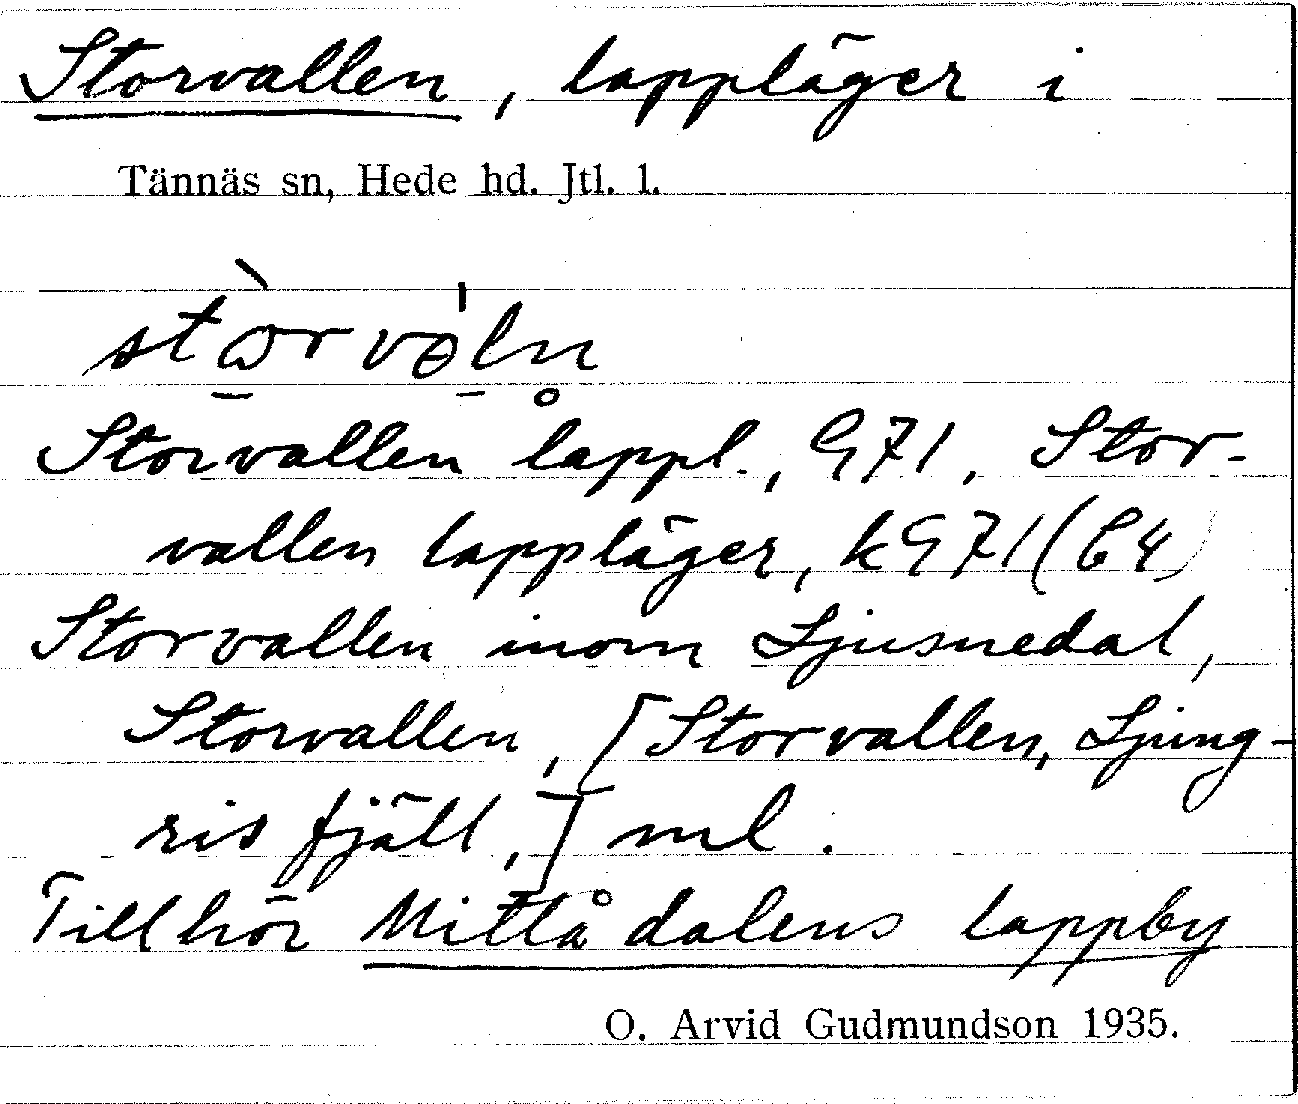 Storvallen, lappläger i
Tännäs sn, Hede hd. Jtl. l.
Storvallen lappl., G71, Stor-
vallen lappläger, kG71(C4)
Storvallen inom Ljusnedal,
Storvallen, [Storvallen, Ljung-
ris fjäll,] ml.
Tillhör Mittådalens lappby
O. Arvid Gudmundson 1935.